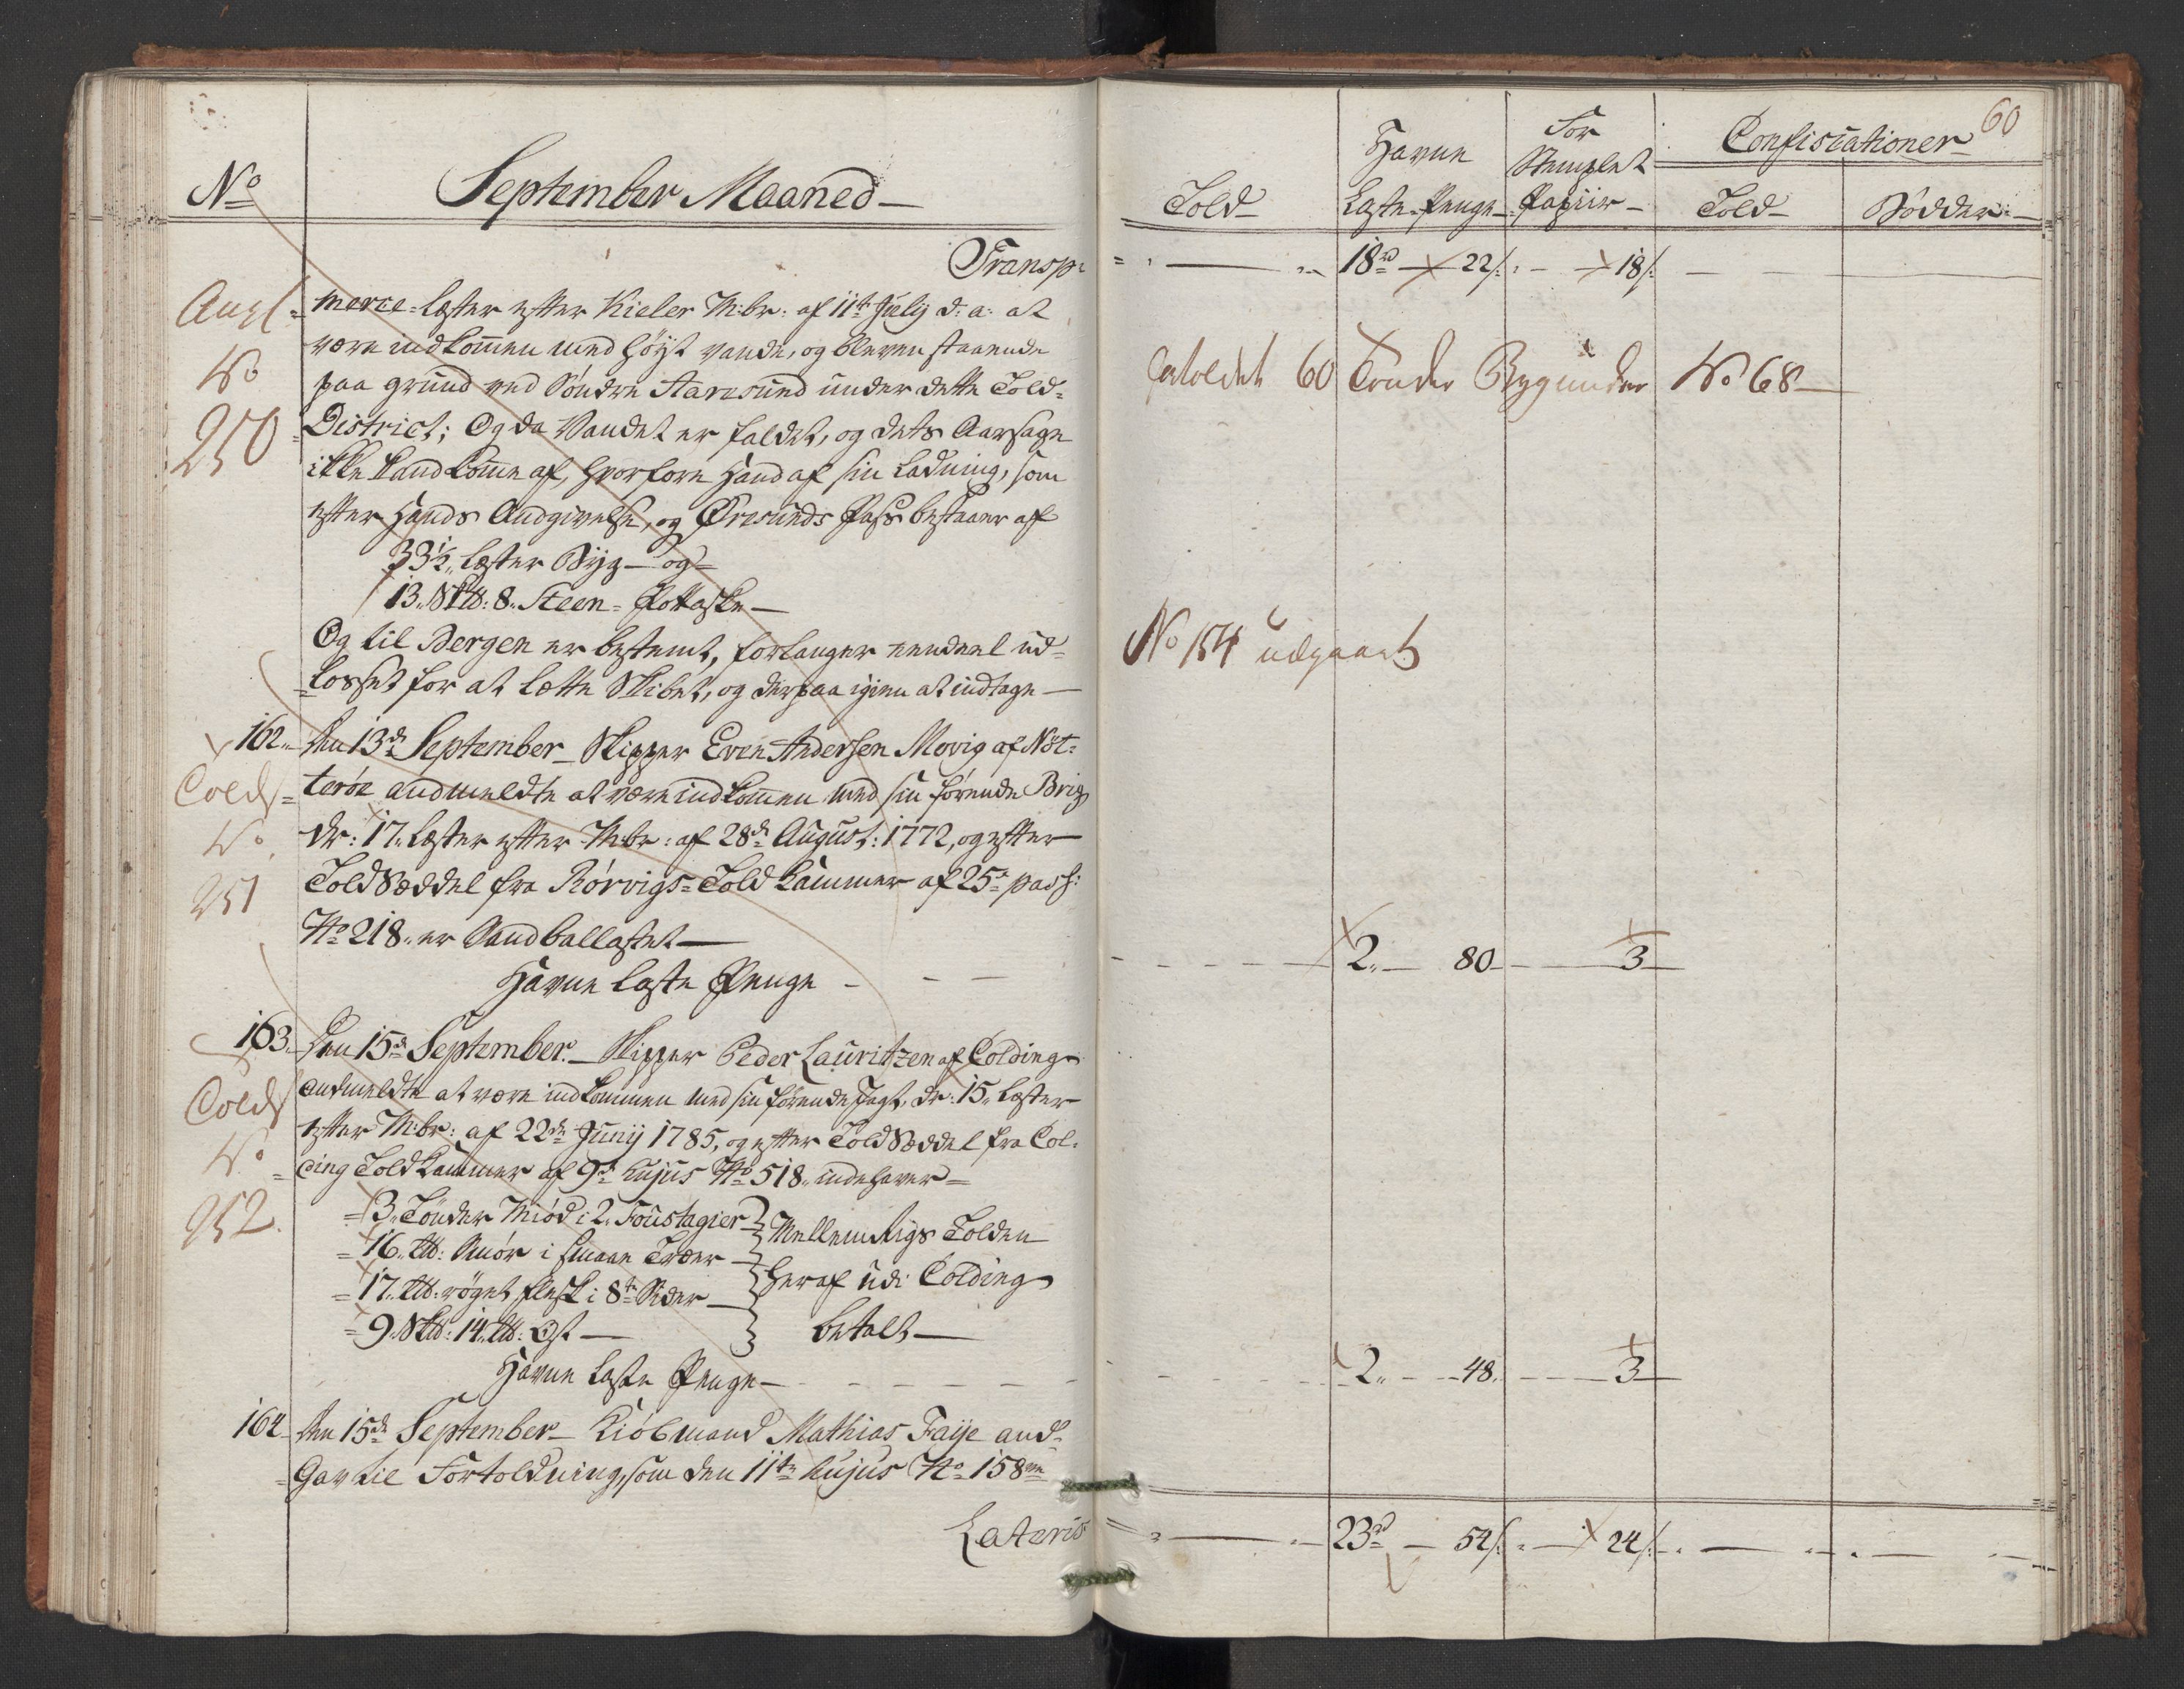 No
September Maaned
Transp:
Angl.
No
250
merce-læster efter Kieler M:br: af 11te July d: a: at
være indkommen med høyt vande, og bleven staaende
paa grund ved Söndre Aarøsund under dette Told-
District; Og da Vandet er faldet, og dets Aarsage
ikke kand komme af, hvorfore hand af sin Ladning, som
efter hands Andgivelse, og Øresunds Pass bestaaer af
33½ læster Byg og
13 Sk℔: 8 Steen Pottaske
Og til Bergen er bestemt, forlanger eendeel ud-
losset for at lætte Skibet, og derpaa igien at indtage
162 Den 13de September Skipper Even Andersen Movig af Nöt-
Colds
No
251
teröe andmeldte at være indkommen med sin førende Brig
dr: 17 Læster efter M:br: af 28de August: 1772, og efter
Told Sæddel fra Rörvigs Told Kammer af 25de pass:
No 218 er Sandballastet
Havne Læste Penge
163 Den 15de September Skipper Peder Lauritzen af Colding
Colds
No
252.
andmeldte at være indkommen med sin førende Jagt, dr: 15 Læster
efter M:br: af 22de Junij 1785, og efter Told Sæddel fra Col-
ding Told Kammer af 9de hujus No 518 indehaver
3 Tönder Miød i 2 Foustagier
16 ℔: Smör i smaae Træer
17 ℔: røget flesk i 8te Sider
9 Sk℔: 14 ℔: Ost
Mellemrigs Tolden
heraf udi Colding
betalt
Havne Læste Penge
164 Den 15de September Kiöbmand Mathias Faye and-
Gav til Fortoldning, som den 11te hujus No 158
Lateris
60
Told
Havne
Læste-Penge
For
Stemplet
Papiir
Confiscationer
Told
Bödder
18rd 22/: 18/:
fortoldet 60 Tønder Byg under No 68
No 184 udgaaet
2 80 3
2 48 3
23rd 54/: 24/: